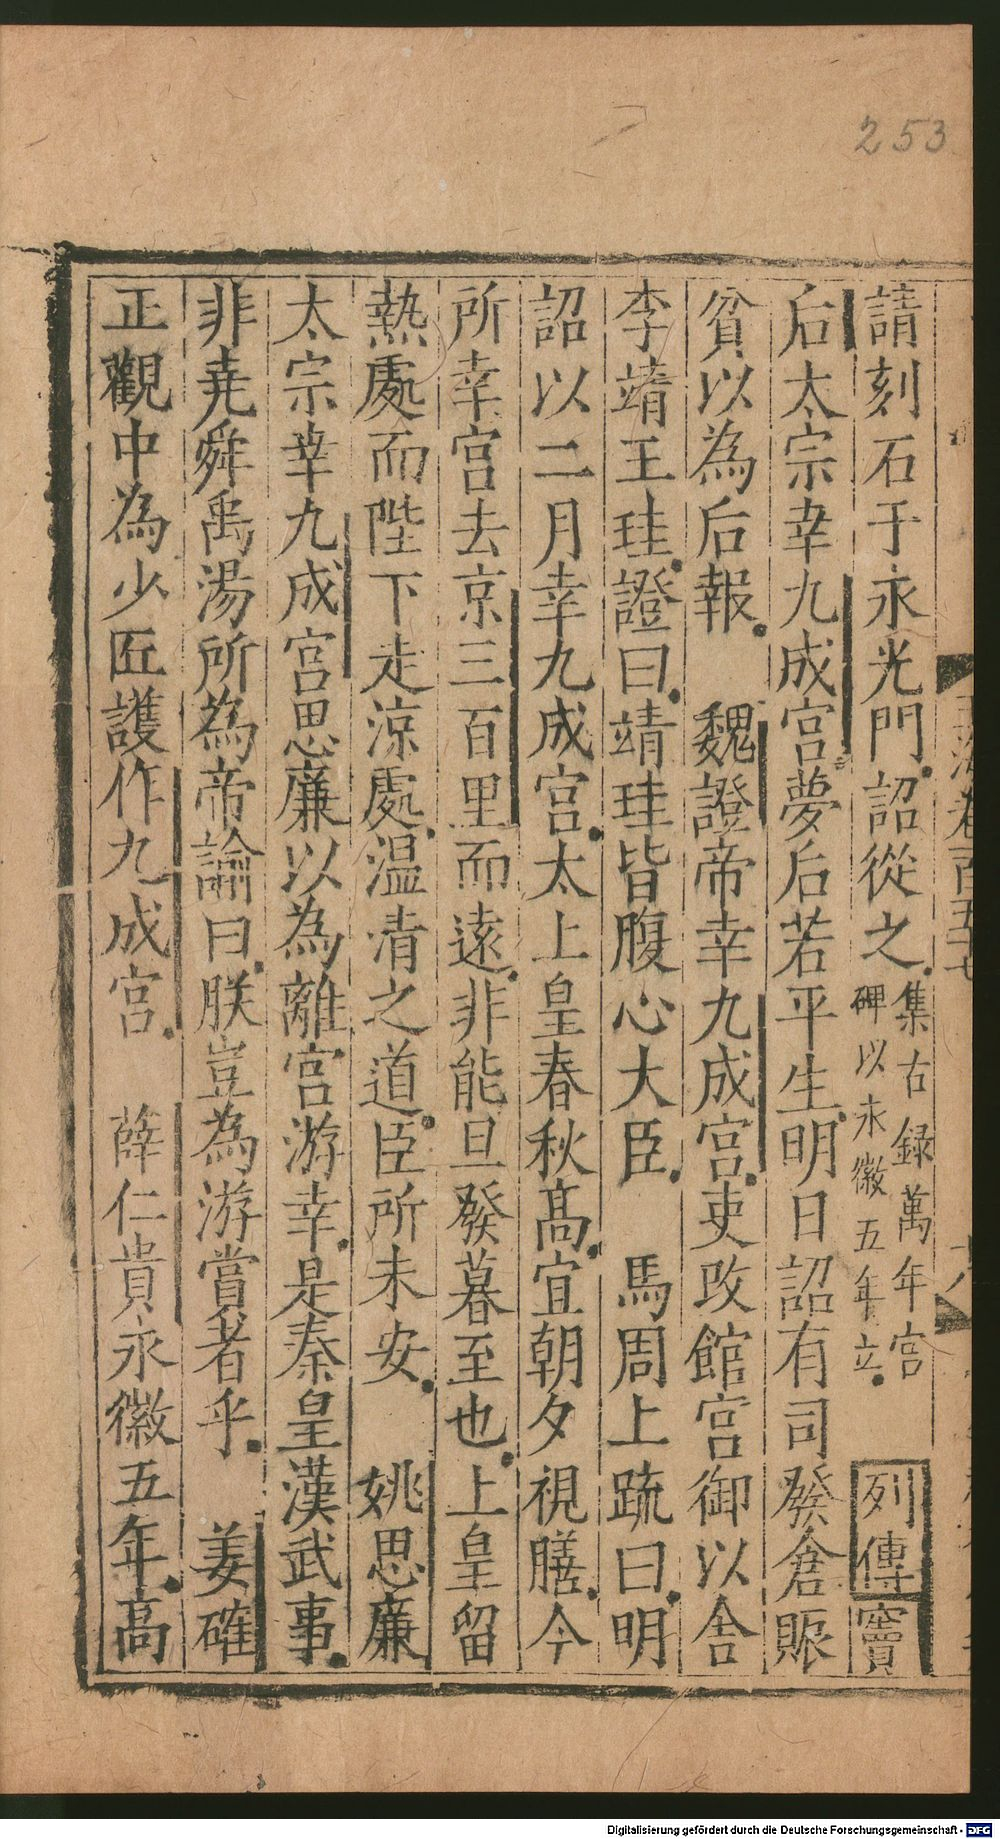 253
請刻石于永光門詔從之集古録萬年宫
碑以永徽五年立列傳竇
后太宗幸九成宫夢后若平生明日詔有司發倉賑
貧以為后報 魏證帝幸九成宫吏改館宫御以舎
李靖王珪證曰靖珪皆腹心大臣 馬周上疏曰明
詔以二月幸九成宫太上皇春秋髙宜朝夕視膳今
所幸宫去京三百里而逺非能旦發暮至也上皇留
熱處而陛下走涼處温清之道臣所未安 姚思廉
太宗幸九成宫思廉以為離宫游幸是秦皇漢武事
非堯舜禹湯所為帝諭曰朕豈為游賞者乎 姜確
正觀中為少匠護作九成宫 薛仁貴永徽五年髙
Digitalisierung gefördert durch die Deutsche Forschungsgemeinschaft - DFG